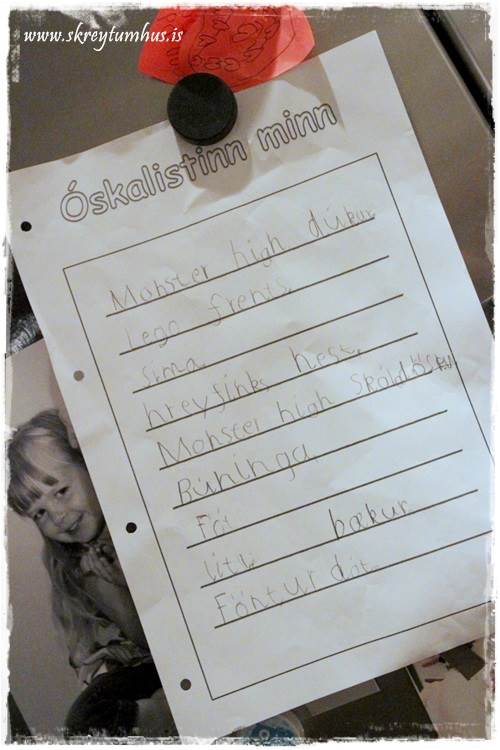 www.skreytumhus.is
Óskalistinn minn
Monster high dúkur
Lego frents
síma
hreyfink hest
Monster high skóldösku
Búninga
Föt
liti bækur
Föntur dót